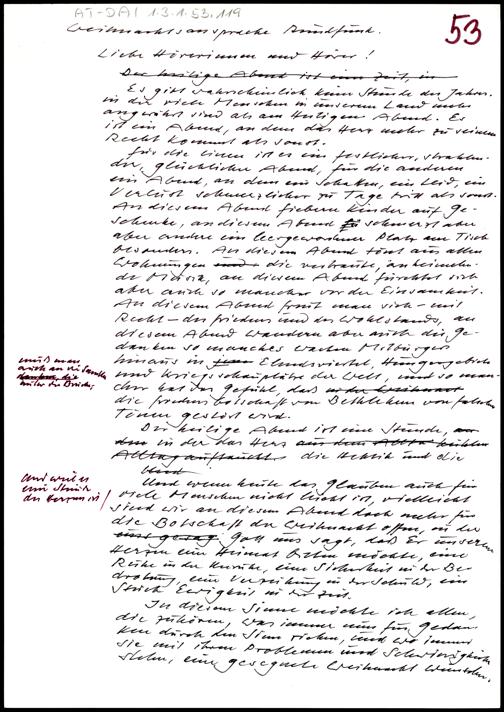 AT-DAI 1.3.1.53.119
53
Weihnachtsansprache Rundfunk.
Liebe Hörerinnen und Hörer!
Der heilige Abend ist eine Zeit, in
Es gibt wahrscheinlich keine Stunde des Jahres,
in der viele Menschen in unserem Land mehr
angerührt sind als am Heiligen Abend. Es
ist ein Abend, an dem das Herz mehr zu seinem
Recht kommt als sonst.
Für die einen ist es ein festlicher, strahlen-
der, glücklicher Abend, für die anderen
ein Abend, an dem ein Schatten, ein Leid, ein
Verlust schmerzlicher zu Tage tritt als sonst.
An diesem Abend fiebern Kinder auf Ge-
schenke, an diesem Abend schmerzt aber
aber andere ein leergewordener Platz am Tisch
besonders. An diesem Abend tönt aus allen
Wohnungen die vertraute, anheimeln-
de Musik, an diesem Abend fürchtet sich
aber auch so mancher vor der Einsamkeit.
An diesem Abend freut man sich – mit
Recht – des Friedens und des Wohlstands, an
diesem Abend wandern aber auch die Ge-
danken so manches wachen Mitbürgers
hinaus in Elendsviertel, Hungergebiete
und Kriegsschauplätze der Welt, und so man-
cher hat das Gefühl, daß
die Friedensbotschaft von Bethlehem von falschen
Tönen gestört wird.
muß man
auch an die
unter der Brücke
Der heilige Abend ist eine Stunde, an
dem in der das Herz aus dem Alltag
Alltag auftaucht die Hektik und die
Und
und weil es
eine Stunde
des Herzens ist
Und wenn heute das Glauben auch für
viele Menschen nicht leicht ist, vielleicht
sind wir an diesem Abend doch mehr für
die Botschaft der Weihnacht offen, in der
uns gesagt Gott uns sagt, daß Er unserem
Herzen eine Heimat bieten möchte, eine
Ruhe in der Unruhe, eine Sicherheit in der Be-
drohung, eine Verzeihung in der Schuld, ein
Stück Ewigkeit in der Zeit.
In diesem Sinne möchte ich allen,
die zuhören, was immer nun für Gedan-
ken durch den Sinn ziehen, und wo immer
sie mit ihren Problemen und Schwierigkeiten
stehen, eine gesegnete Weihnacht wünschen.